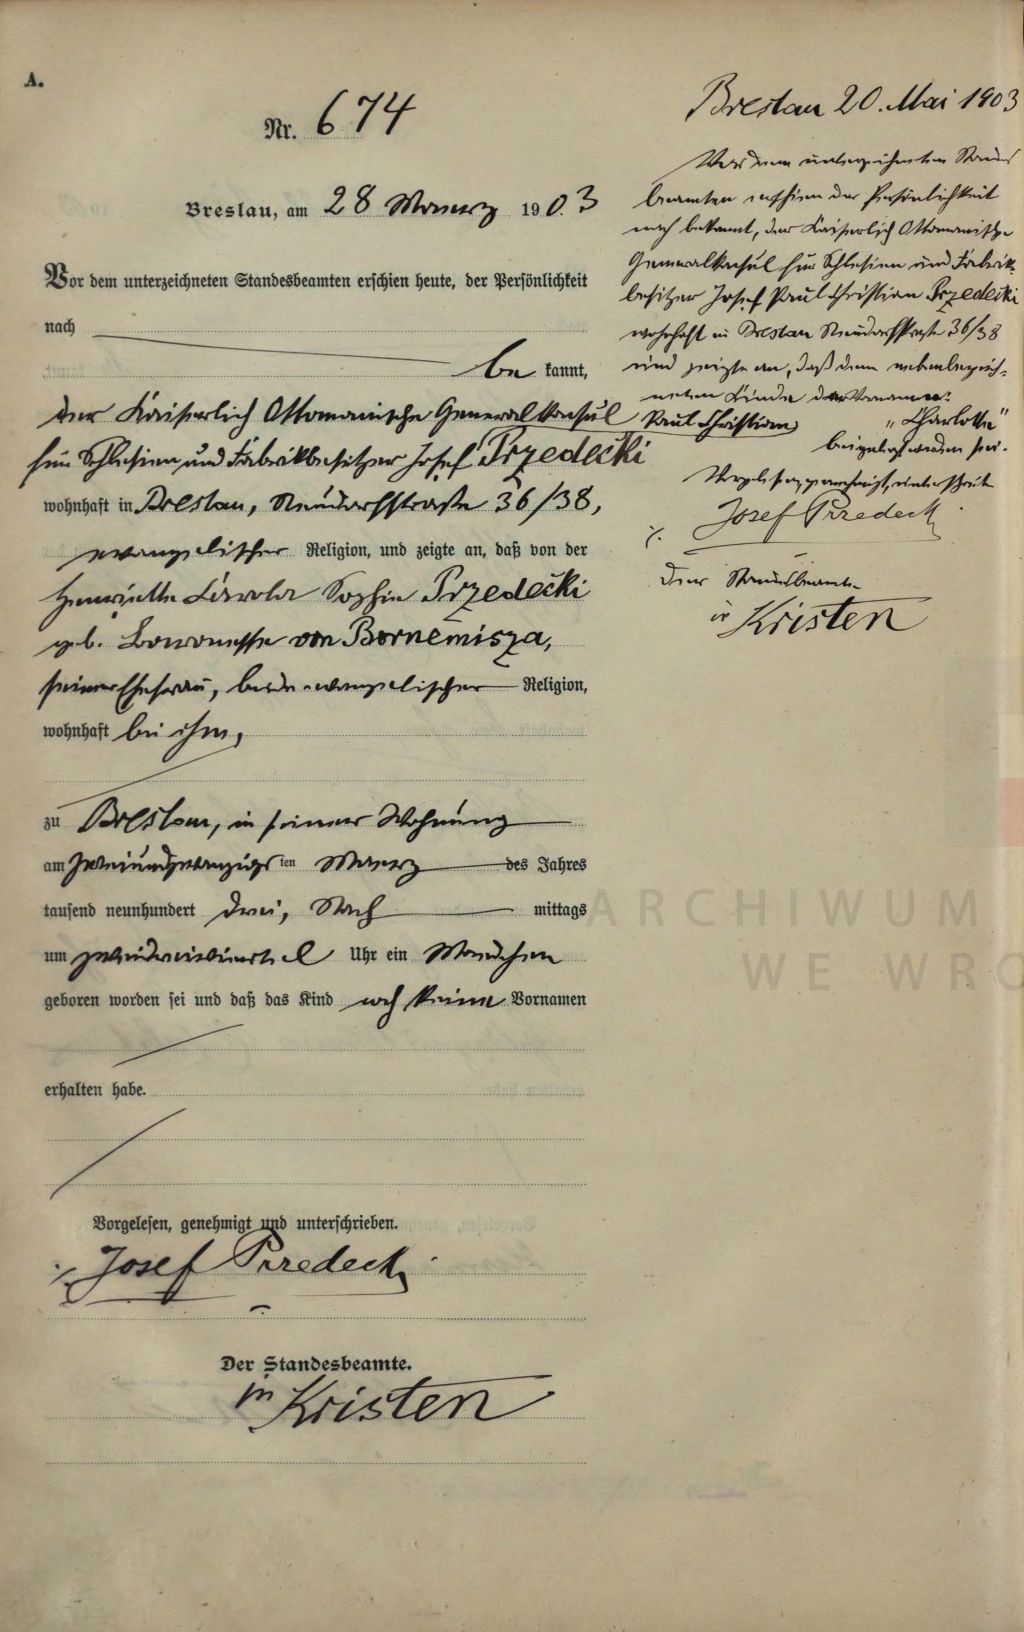 A.
Nr. 674
Breslau, am 28 Maerz 190.3
Vor dem unterzeichneten Standesbeamten erschien heute, der Persönlichkeit
nach
be kannt,
der Kaiserlich Ottomanische Generalkonsul Paul Christian
für Schlesien und Fabrikbesitzer Josef Przedecki
wohnhaft in Breslau, Neudorfstraße 36/38,
evangelischer Religion, und zeigte an, daß von der
Henriette Carola Sophie Przedecki
geb. Baronesse von Bornemisza,
seiner Ehefrau, beide evangelischer Religion,
wohnhaft bei ihm,
zu Breslau, in seiner Wohnung
am zweiundzwanzigsten Maerz des Jahres
tausend neunhundert drei, Nach mittags
um Uhr ein Mädchen
geboren worden sei und daß das Kind noch keine Vornamen
erhalten habe.
Vorgelesen, genehmigt und unterschrieben.
Josef Przedecki
Der Standesbeamte.
Kristen
Breslau 20. Mai 1903
Vor dem unterzeichneten Standes
beamten erschien der Persönlichkeit
nach bekannt, der Kaiserlich Ottomanische
Generalkonsul für Schlesien und Fabrik-
besitzer Josef Paul Christian Przedecki
wohnhaft in Breslau Neudorfstraße 36/38
und zeigte an, daß dem nebenbezeich-
neten Kinde der Vorname:
"Charlotte"
beigelegt worden sei.
Vorgelesen, genehmigt, unterschrieben
Josef Przedecki
Der Standesbeamte
Kristen
ARCHIWUM
WE WRO